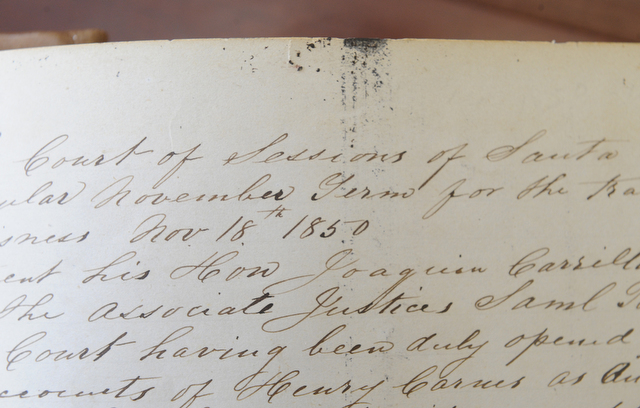 Court of Sessions of Santa
ular November Term for the tra
siness Nov 18th 1850
ent his Hon Joaquin Carrillo
the Associate Justices Saml
Court having been duly opened
ccounts of Henry Carnes as Au